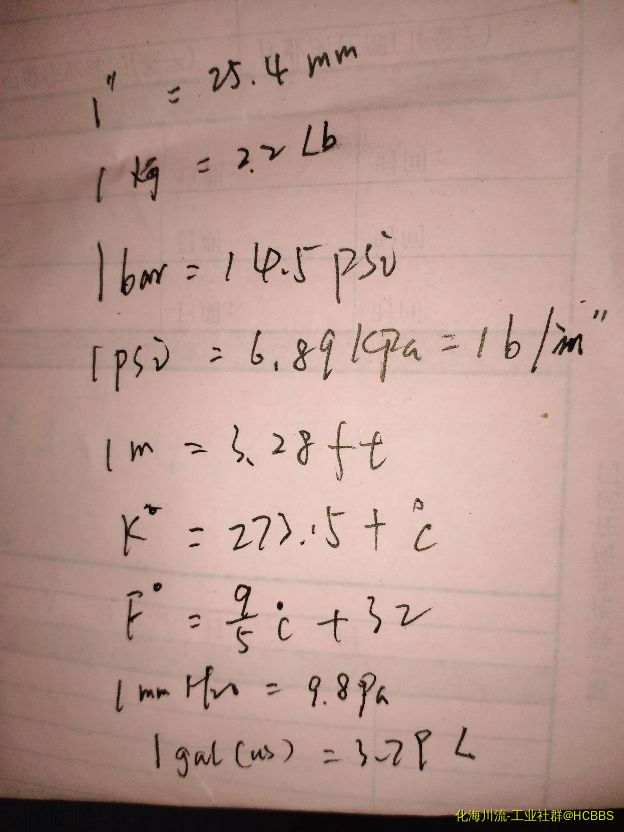 1" = 25.4 mm
1 kg = 2.2 Lb
1 bar = 14.5 psi
1 psi = 6.89 kpa = 1 b/in"
1 m = 3.28 ft
K° = 273.15 + °C
F° = 9/5 °C + 32
1 mm H2O = 9.8 Pa
1 gal (us) = 3.79 L
化海川流-工业社群@HCBBS